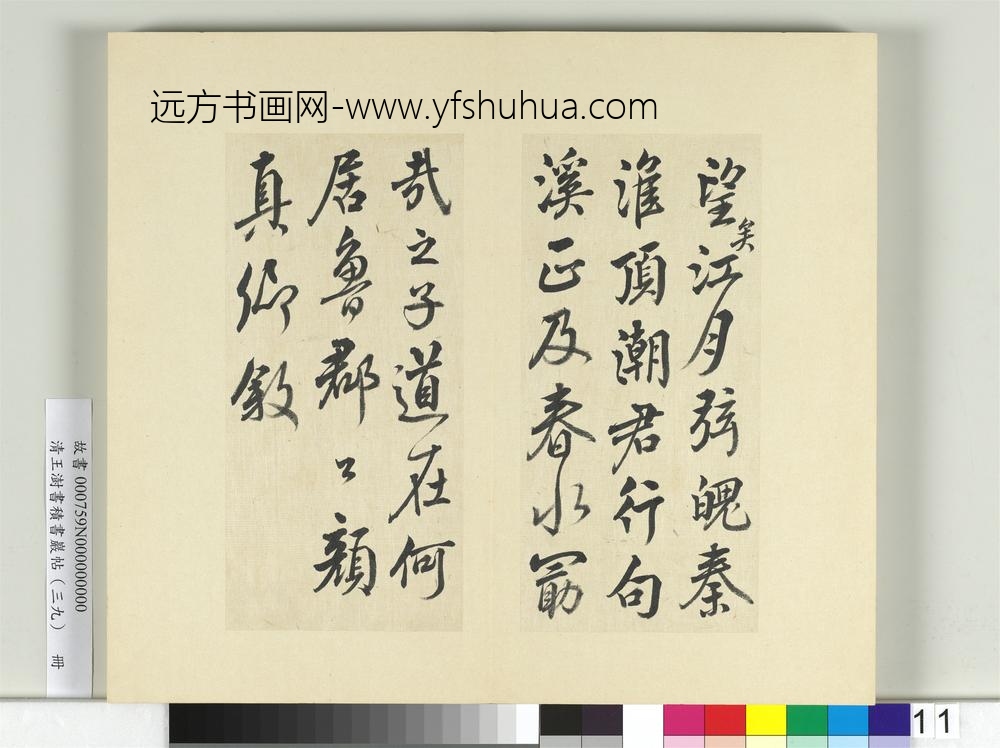 远方书画网-www.yfshuhua.com
望矣江月弦魄秦
淮頂潮君行句
溪正及春水勗
哉之子道在何
居魯郡公顏
真卿敘
故書 000759N000000000
清王澍書積書巖帖（三九） 冊
11